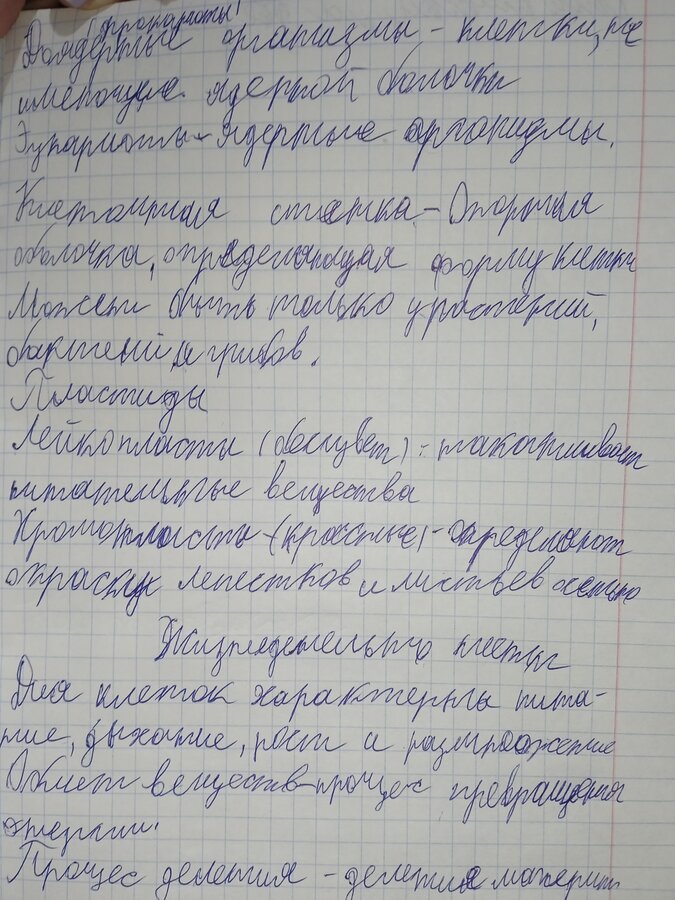 (прокариоты)
Доядерные организмы - клетки, не
имеющие ядерной оболочки
Эукариоты - ядерные организмы.
Клеточная стенка - Опорная
оболочка, определяющая форму клетки
Может быть только у растений,
бактений и грибов.
Пластиды
Лейкопласты (бесцвет) - накапливают
питательные вещества
Хромопласты - (красные) - определяют
окраску лепестков и листьев осенью
Жизнедеятельность клетки
Для клеток характерны пита-
ние, дыхание, рост и размножение
Обмен веществ - процес превращения
энергии.
Процес деления - деления материн